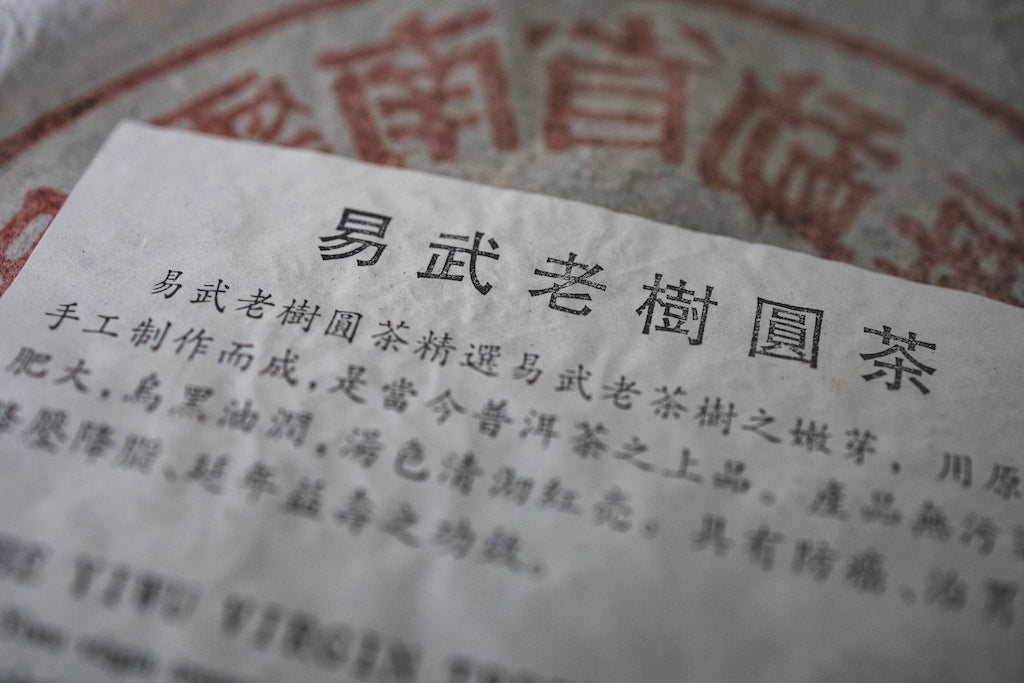 南省
易武老樹圓茶
易武老樹圓茶精選易武老茶樹之嫩芽，用原
手工制作而成，是當今普洱茶之上品。產品無污
肥大，烏黑油潤，湯色清 紅亮。具有防癌、治胃
降壓降脂、延年益壽之功效。
YIWU VIRGIN